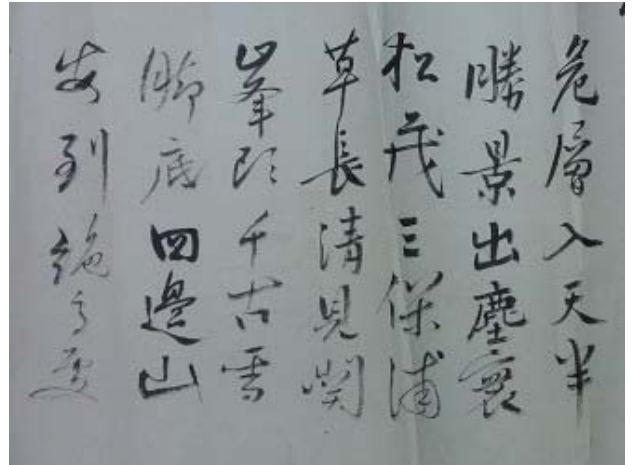 危層入天半
勝景出塵寰
松茂三保浦
草長清見関
峯頭千古雪
脚底四邊山
毎到絶高處